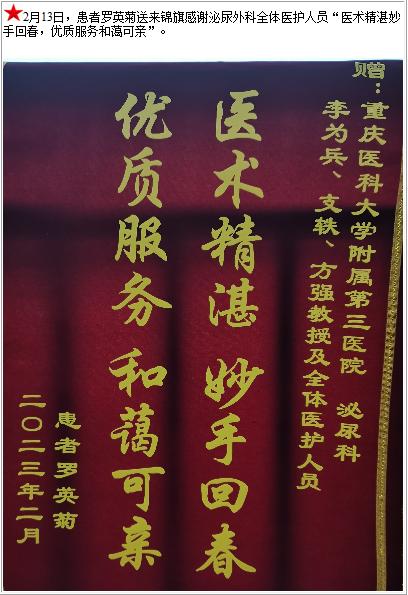 2月13日，患者罗英菊送来锦旗感谢泌尿外科全体医护人员“医术精湛妙
手回春，优质服务和蔼可亲”。
赠：重庆医科大学附属第三医院 泌尿科
李为兵、支轶、方强教授及全体医护人员
医术精湛 妙手回春
优质服务 和蔼可亲
患者罗英菊
二〇二三年二月